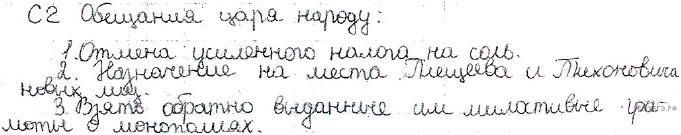 С2 Обещания царя народу:
1. Отмена усиленного налога на соль.
2. Назначение на места Плещеева и Тихоновича
новых лиц.
3. Взять обратно выданные им милостивые гра-
моты о монополиях.